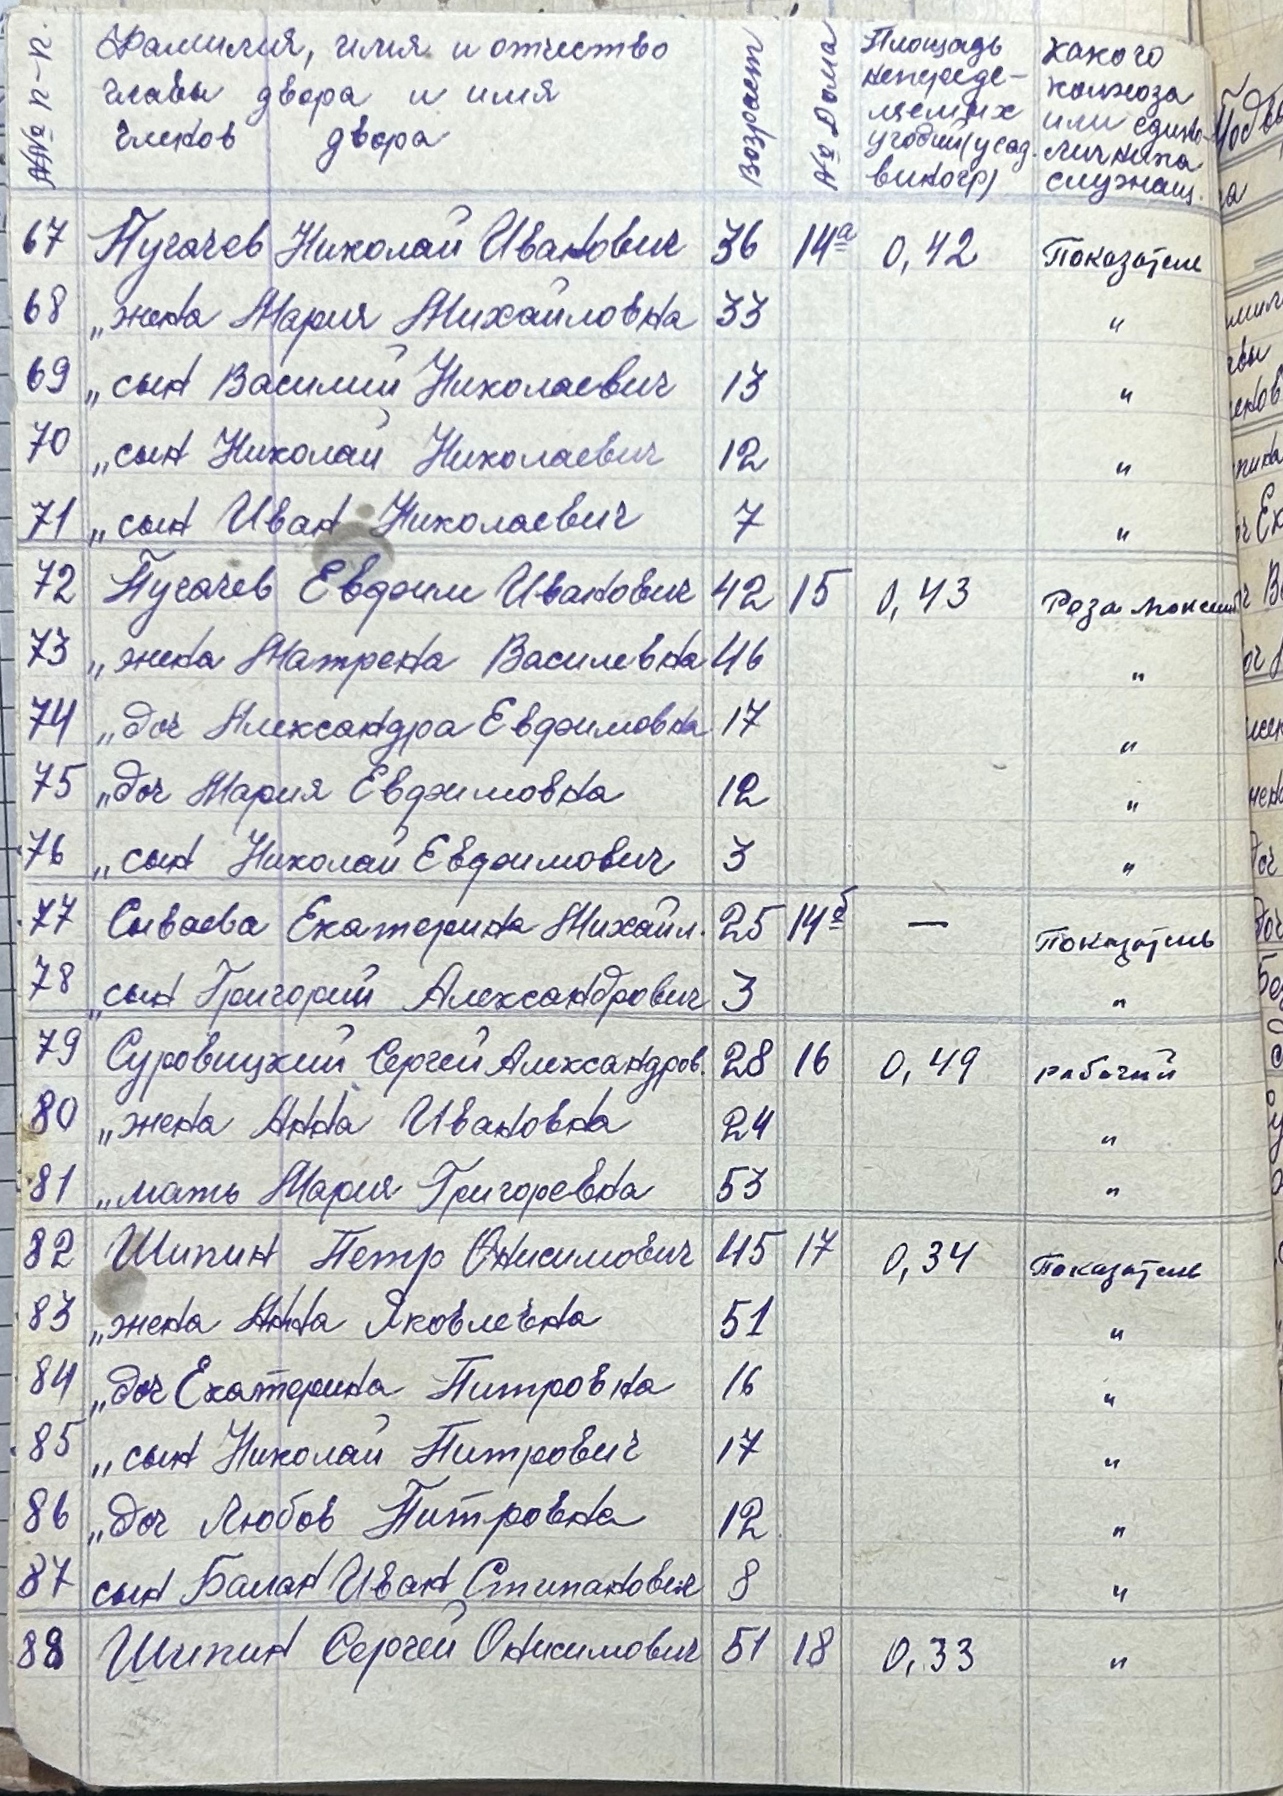 №№ п-п. Фамилия, имя и отчество главы двора и имя членов двора Возраст № Дома Площадь непереде-лемых угодий(усад. виногр) какого колхоза или едино-личника служащ.
67 Пугачев Николай Иванович 36 14а 0,42 Показатель
68 „жена Мария Михайловна 33 "
69 „сын Василий Николаевич 13 "
70 „сын Николай Николаевич 12 "
71 „сын Иван Николаевич 7 "
72 Пугачев Евдоким Иванович 42 15 0,43 Роза
73 „жена Матрена Василевна 46 "
74 „доч Александра Евдокимовна 17 "
75 „доч Мария Евдокимовна 12 "
76 „сын Николай Евдокимович 3 "
77 Сываева Екатерина Михайл. 25 14б — Показатель
78 „сын Григорий Александрович 3 "
79 Суровицкий Сергей Александров. 28 16 0,49 рабочий
80 „жена Анна Ивановна 24 "
81 „мать Мария Григоревна 53 "
82 Шипин Петр Онисимович 45 17 0,34 Показатель
83 „жена Анна Яковлевна 51 "
84 „доч Екатерина Питровна 16 "
85 „сын Николай Питрович 17 "
86 „доч Любов Питровна 12 "
87 сын Балан Иван Стипанович 8 "
88 Шипин Сергей Онисимович 51 18 0,33 "